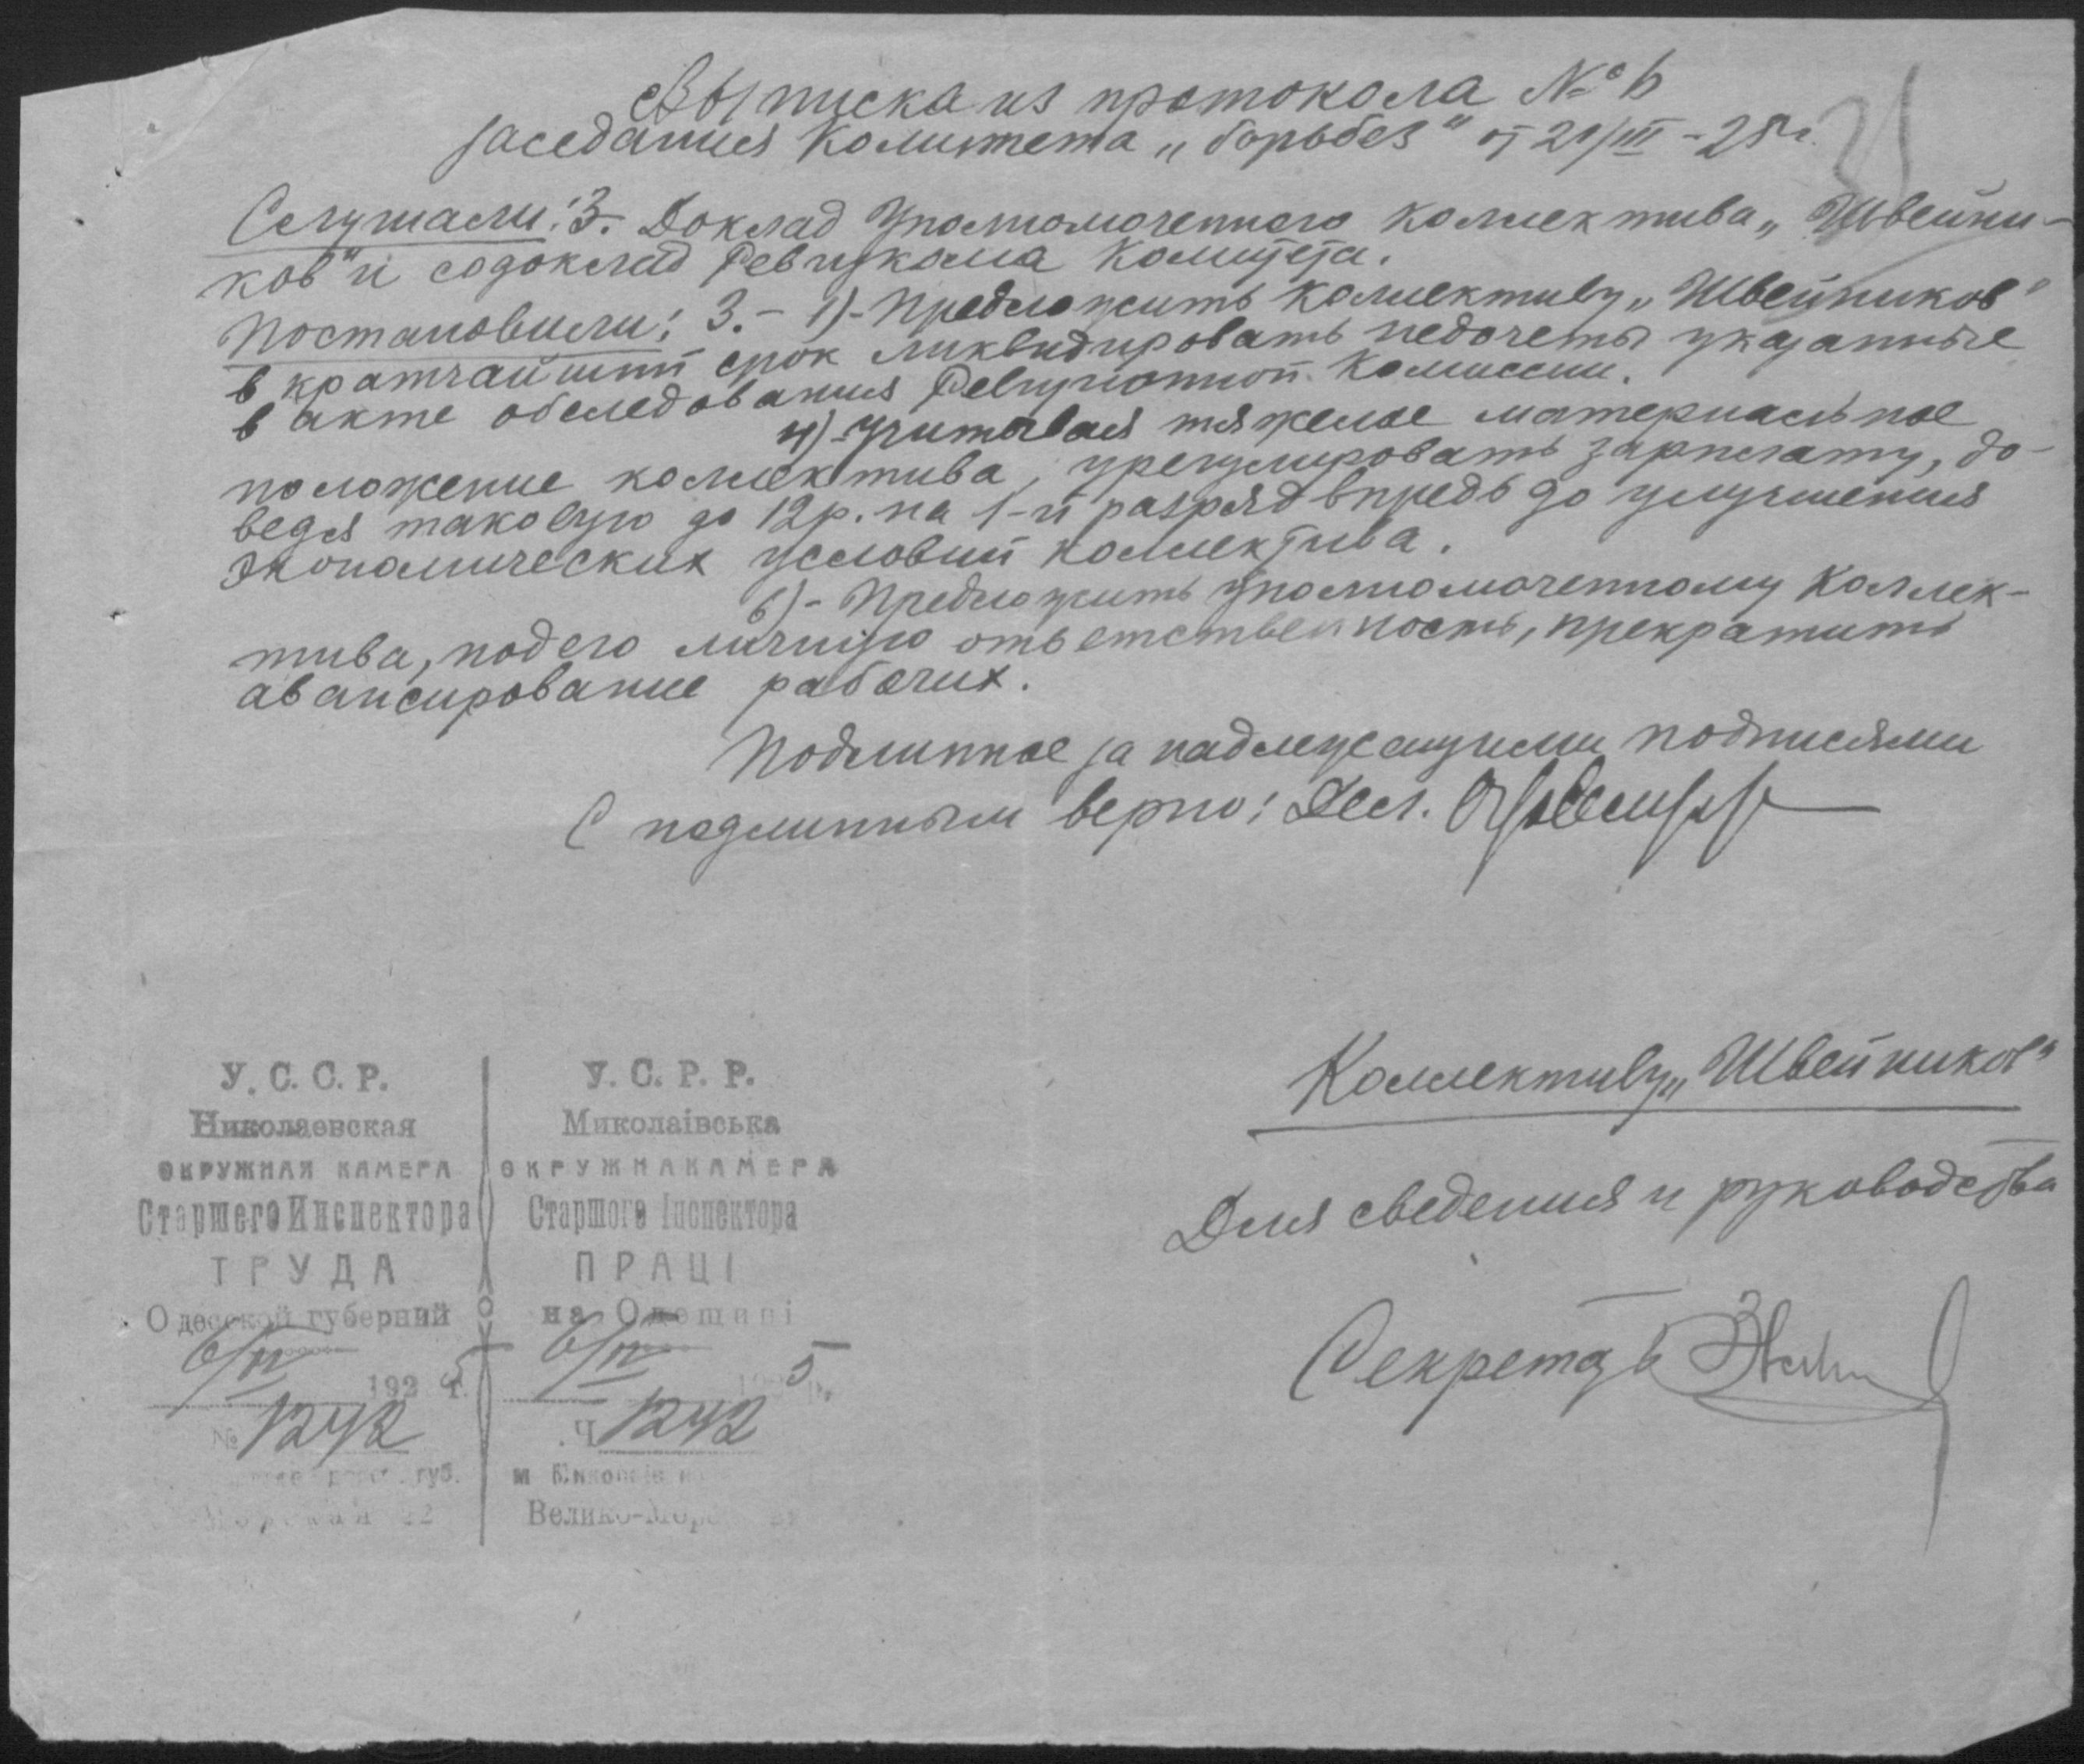 Выписка из протокола № 6
заседания Комитета „борьбез" от 21/III - 25 г.
31
Слушали: 3. Доклад Уполномоченного коллектива „Швейни-
ков" и содоклад Ревизкома Комитета.
Постановили: 3. - 1)- Предложить Коллективу „Швейников"
в кратчайший срок ликвидировать недочеты указанные
в акте обследования Ревизионной Комиссии.
4)- Учитывая тяжелое материальное
положение коллектива, урегулировать зарплату, до-
ведя таковую до 12 р. на 1-й разряд впредь до улучшения
экономических условий коллектива.
6)- Предложить Уполномоченному Коллек-
тива, под его личную ответственность, прекратить
авансирование рабочих.
Подлинное за надлежащими подписями
С подлинным верно: Дел.
Коллективу „Швейников"
Для сведения и руководства
Секретарь
У. С. С. Р.
Николаевская
ОКРУЖНАЯ КАМЕРА
Старшего Инспектора
ТРУДА
Одесской губерний
6/IV 1925 г.
№ 1242
губ.
Морская 22
У. С. Р. Р.
Миколаівська
ОКРУЖНА КАМЕРА
Старшого Інспектора
ПРАЦІ
на Одещині
6/IV 5
Ч 1242
м Миколаів
Велико-Морс